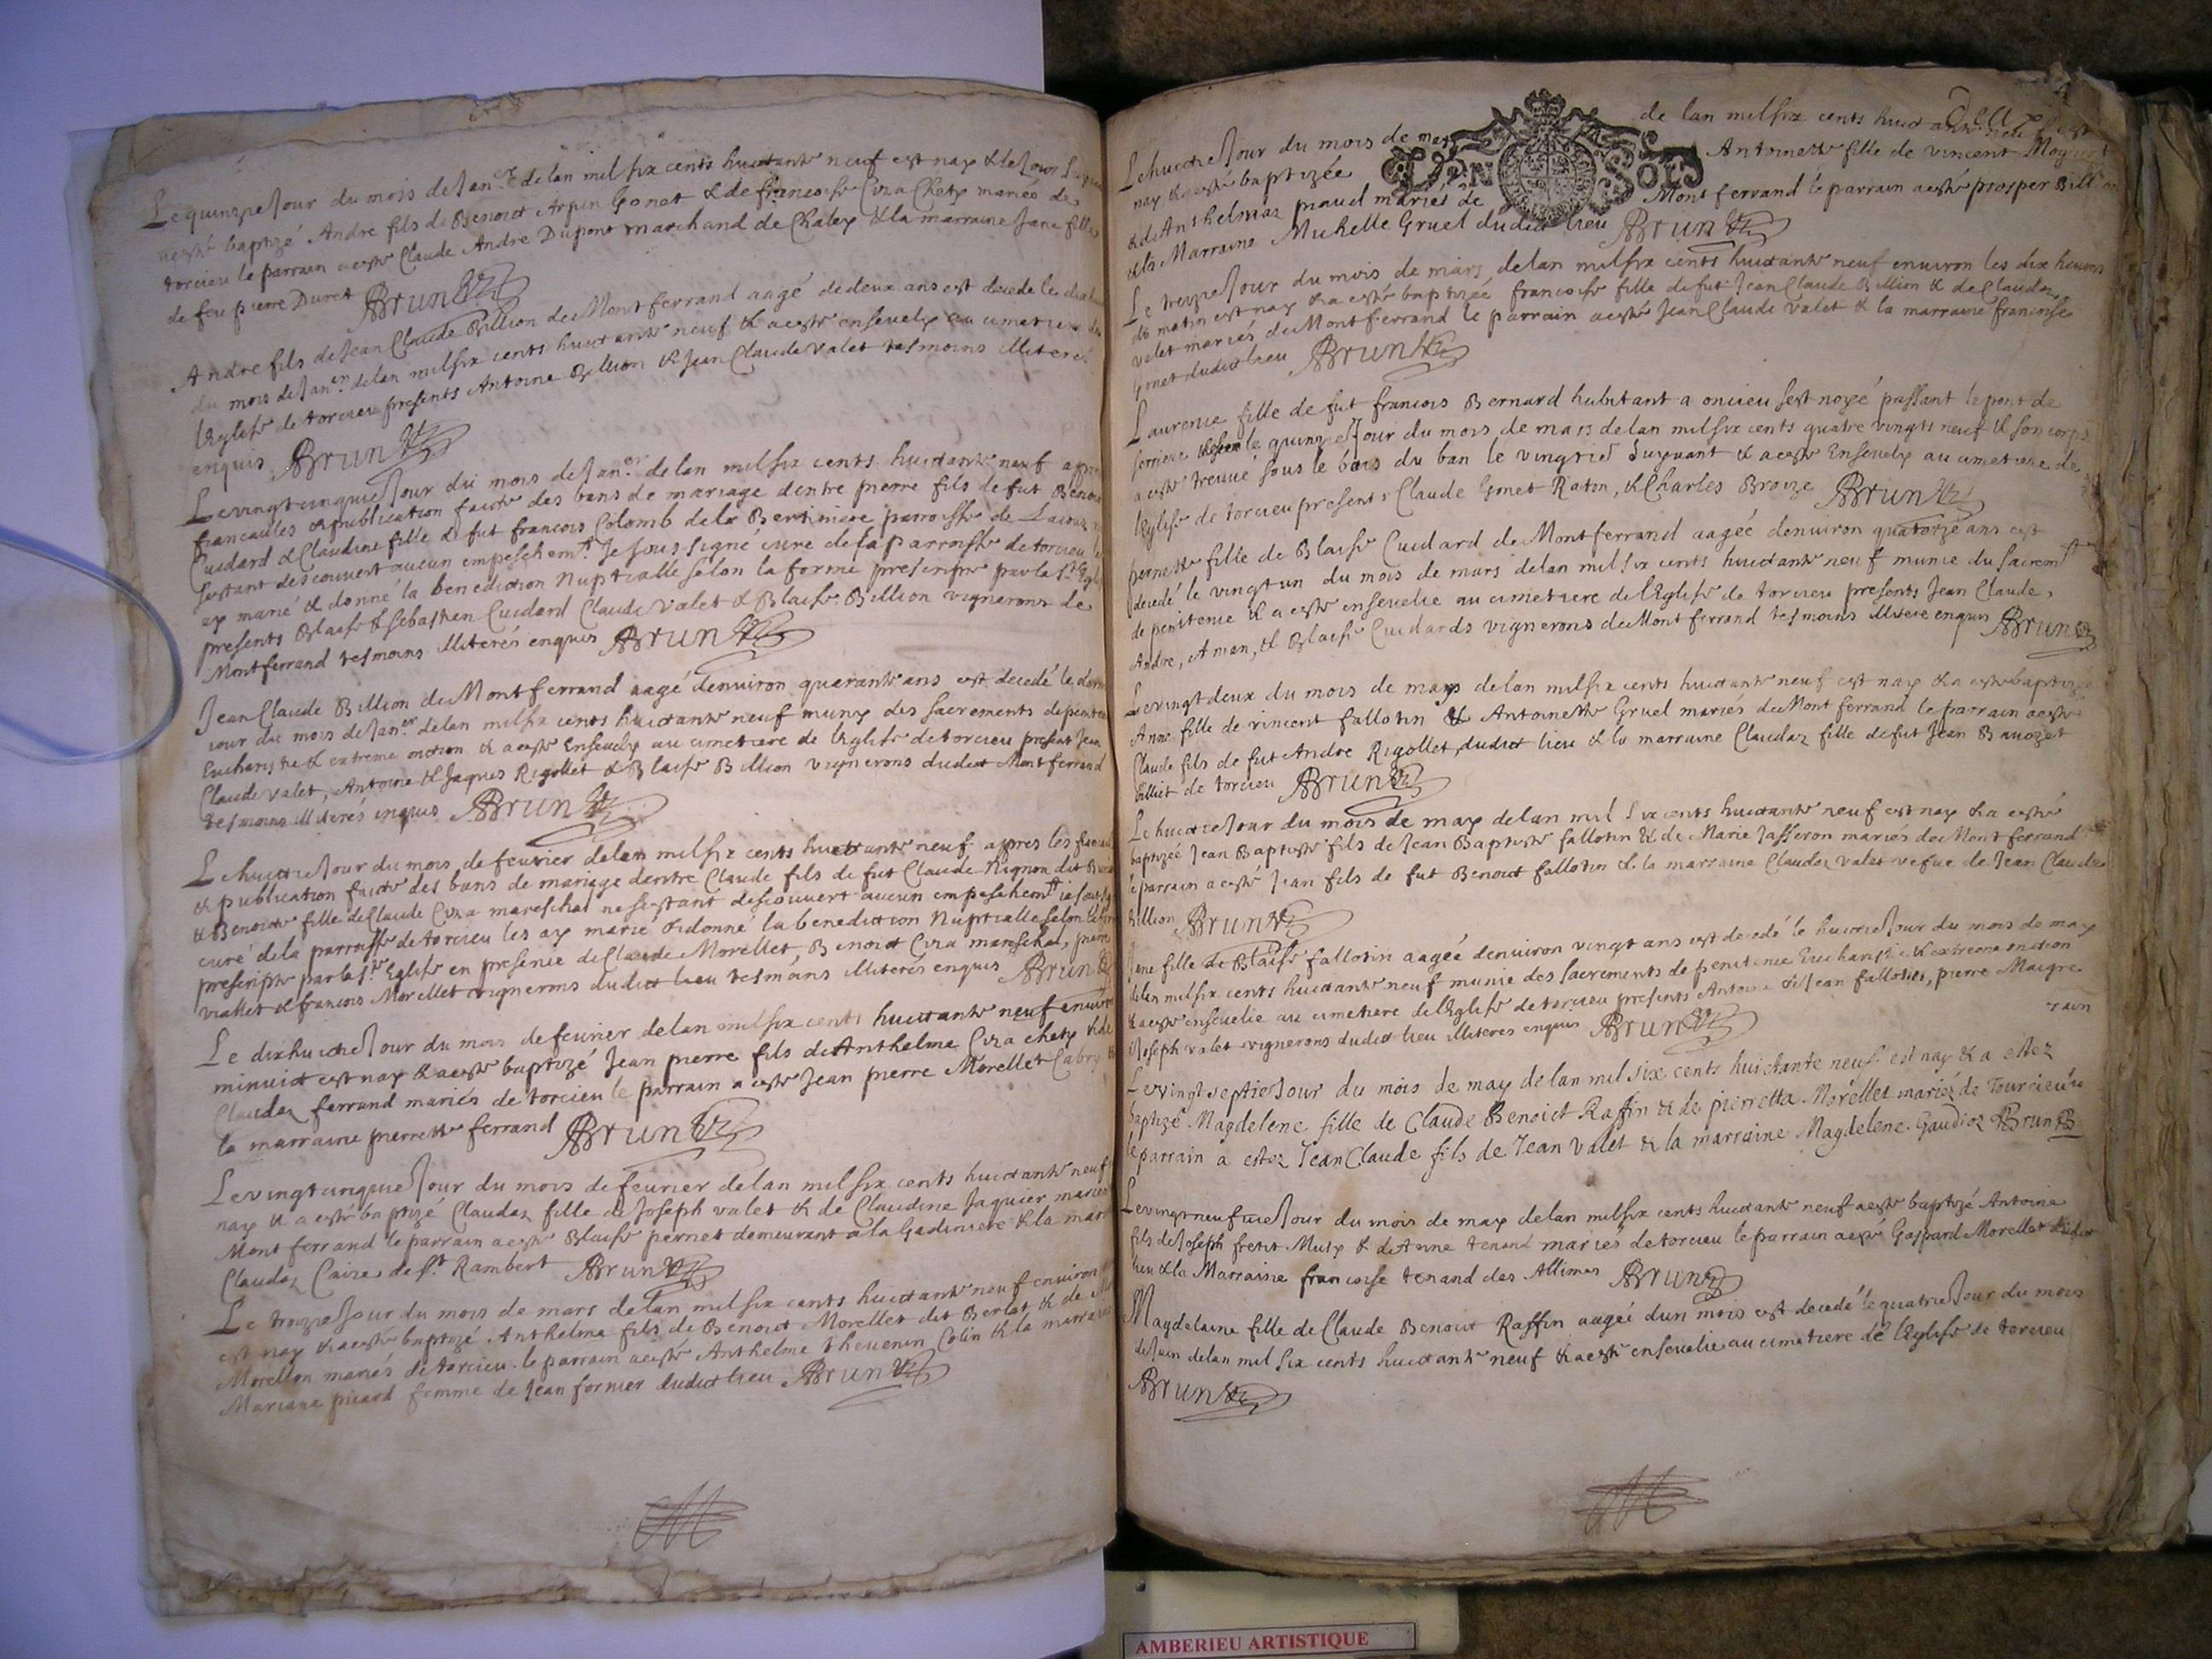 Le quinzieJour du mois de Jan.er de lan mil six cents huictante neuf est nay & le Jour
aesté baptizé Andre fils de Benoict Arpin Gonet & de francoise Cura Chety mariés de
torcieu le parrain aesté Claude Andre Dupont marchand de Chaley & la marraine Jane fille
de feu pierre Duret Brun
Andre fils de Jean Claude Billion de Montferrand aagé de deux ans est decede le
du mois de Jan.er de lan milsix cents huictante neuf & aesté ensevely au cimetiere de
lEglise de torcieu presents Antoine Billion & Jean Claude Valet tesmoins illiterés
enquis Brun
Le vingtcinquieJour du mois de Jan.er de lan milsix cents huictante neuf apres
francailles & publication faicte des bans de mariage dentre pierre fils de fut Benoict
Cuidard & Claudine fille de fut francois Colomb de la Bertiniere parroisse de
sestant descouvert aucun empeschem.t Je soussigné curé de la parroisse de torcieu les
ay marié & donné la benediction Nuptialle selon la forme prescripte par la S.te Eglise
presents Blaise & Sebastien Cuidard Claude Valet & Blaise Billion vignerons de
Montferrand tesmoins illiterés enquis Brun
Jean Claude Billion de Montferrand aagé denviron quarante ans est decedé le dernier
iour du mois de Jan.er de lan milsix cents huictante neuf muny des sacrements de penitence
Eucharistie & extreme onction & aesté Ensevely au cimetiere de lEglise de torcieu present Jean
Claude Valet, Antoine & Jaques Rigollet & Blaise Billion vignerons dudict Montferrand
tesmoins illiterés enquis Brun
Le huictieJour du mois de fevrier de lan milsix cents huictante neuf appres les
& publication faicte des bans de mariage dentre Claude fils de fut Claude Nignon dit
& Benoicte fille de Claude Cura mareschal ne sestant descouvert aucun empeschem.t ie soussigné
curé de la parroisse de torcieu les ay marié & donné la benediction Nuptialle selon la forme
prescripte par la S.te Eglise en presence de Claude Morellet, Benoict Cura mareschal, pierre
viallet & francois Morellet vignerons dudict lieu tesmoins illiterés enquis Brun
Le dixhuictieJour du mois de fevrier de lan milsix cents huictante neuf environ
minuict est nay & aesté baptizé Jean pierre fils de Anthelme Cura chety & de
Claudaz ferrand mariés de torcieu le parrain a esté Jean pierre Morellet Cabry &
la marraine pierrette ferrand Brun
Le vingtcinquieJour du mois de fevrier de lan milsix cents huictante neuf
nay & a esté baptizé Claudaz fille de Joseph valet & de Claudine Jaquier mariés
Montferrand le parrain aesté Blaise pernet demeurant a la Gadiniere & la marraine
Claudaz Caires de S.t Rambert Brun
Le treizieJour du mois de mars de lan milsix cents huictante neuf environ
est nay & aesté baptizé Anthelme fils de Benoict Morellet dit Berlet & de
Morellon mariés de torcieu le parrain aesté Anthelme thevenin Colin & la marraine
Mariane picard femme de Jean fornier dudict lieu Brun
Le huictieJour du mois de mars de lan milsix cents huictante neuf est
nay & aesté baptizée Antoinette fille de vincent
& de Anthelmaz praud mariés de Montferrand le parrain aesté prosper Billion
& la Marraine Michelle Gruel dudict lieu Brun
Le treizieJour du mois de mars de lan milsix cents huictante neuf environ les dix heures
du matin est nay & a esté baptizée francoise fille de fut Jean Claude Billion & de Claudaz
valet mariés de Montferrand le parrain aesté Jean Claude Valet & la marraine francoise
Gonet dudict lieu Brun
Laurence fille de fut francois Bernard habitant a oncieu sest noyé passant le pont de
serriere le quinzieJour du mois de mars de lan milsix cents quatre vingts neuf & son corps
a esté treuvé sous le bois du ban le vingtie suyvant & a esté Ensevely au cimetiere de
lEglise de torcieu presents Claude Gonet Raton, & Charles Broize Brun
pernette fille de Blaise Cuidard de Montferrand aagée denviron quatorze ans est
decedé le vingtun du mois de mars de lan milsix cents huictante neuf munie du sacrem.t
de penitence & a esté ensevelie au cimetiere de lEglise de torcieu presents Jean Claude,
Andre, Aman, & Blaise Cuidards vignerons de Montferrand tesmoins illiteré enquis Brun
Le vingtdeux du mois de mars de lan milsix cents huictante neuf est nay & a esté baptizé
Anne fille de vincent fallotin & Antoinette Gruel mariés de Montferrand le parrain aesté
Claude fils de fut Andre Rigollet, dudict lieu & la marraine Claudaz fille de fut Jean Bavozet
de torcieu Brun
Le huictieJour du mois de may de lan mil six cents huictante neuf est nay & a esté
baptizée Jean Baptiste fils de Jean Baptiste fallotin & de Marie Jasseron mariés de Montferrand
le parrain a esté Jean fils de fut Benoict fallotin & la marraine Claudaz valet vefue de Jean Claude
Billion Brun
Jane fille de Blaise fallotin aagée denviron vingt ans est decedé le huictieJour du mois de may
de lan milsix cents huictante neuf munie des sacrements de penitence Eucharistie & extreme onction
& aesté ensevelie au cimetiere de lEglise de torcieu presents Antoine & Jean fallotin, pierre Maigre
& Joseph valet vignerons dudict lieu illiteres enquis Brun
Le vingtseptieJour du mois de may de lan mil six cents huictante neuf est nay & a estez
baptizé Magdelene fille de Claude Benoict Raffin & de pierretta Morellet mariéz de Tourcieu
le parrain a estez Jean Claude fils de Jean Valet & la marraine Magdelene Gaudioz Brun
Le vingtneufvieJour du mois de may de lan milsix cents huictante neuf aesté baptizé Antoine
fils de Joseph fretit Musy & de Anne tenand mariés de torcieu le parrain aesté Gaspard Morellet dudict
lieu & la Marraine francoise tenand des Allimes Brun
Magdelaine fille de Claude Benoict Raffin aagée dun mois est decedé le quatrieJour du mois
de Juin de lan mil six cents huictante neuf & aesté ensevelie au cimetiere de lEglise de torcieu
Brun
AMBERIEU ARTISTIQUE